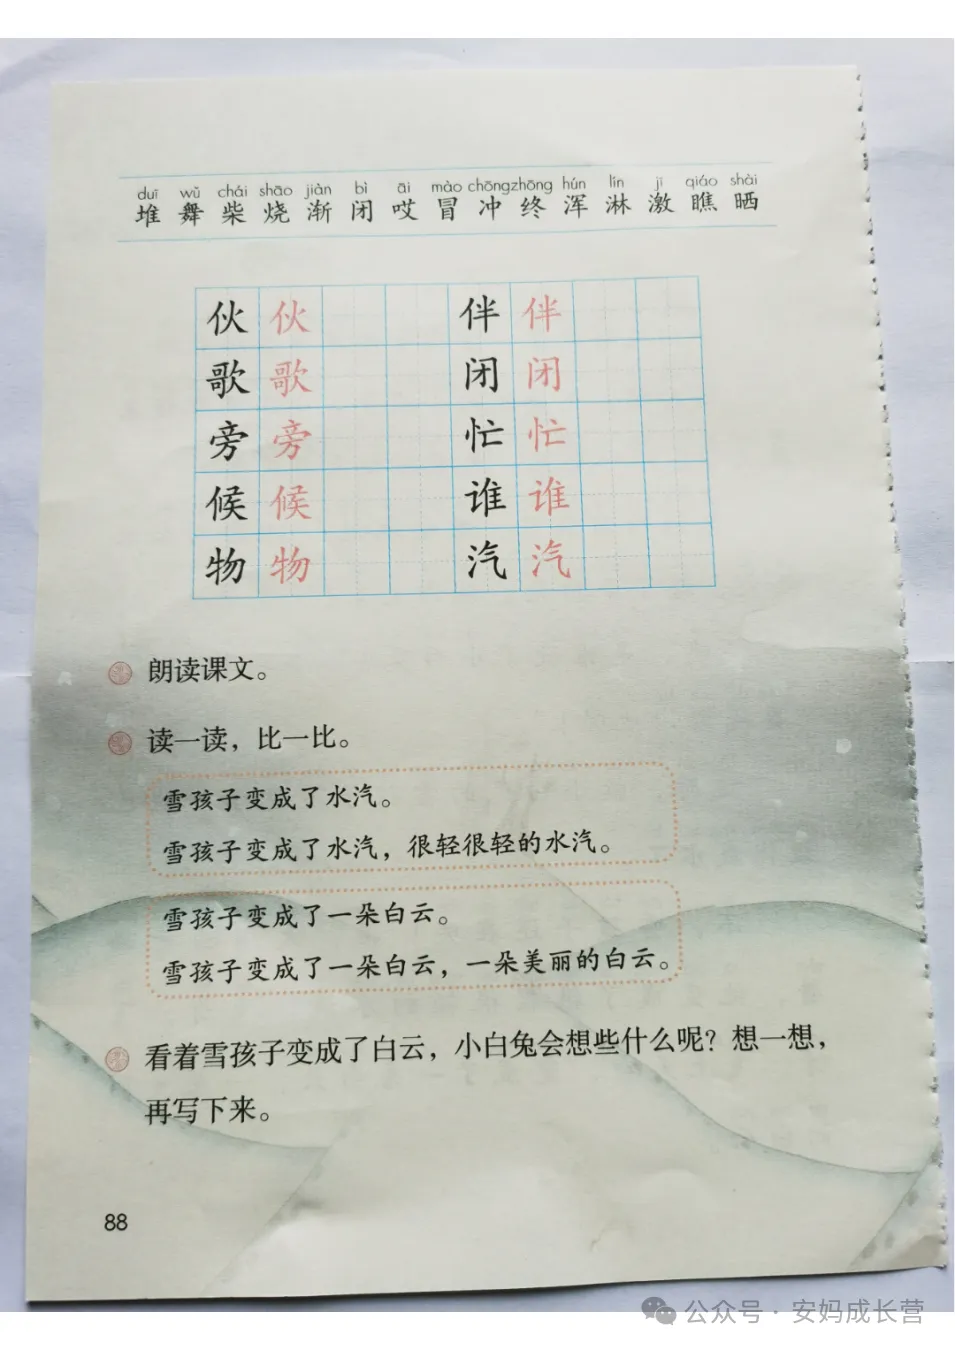 duī wǔ chái shāo jiàn bì āi mào chōng zhōng hún lín jī qiáo shài
堆 舞 柴 烧 渐 闭 哎 冒 冲 终 浑 淋 激 瞧 晒
伙 伙 伴 伴
歌 歌 闭 闭
旁 旁 忙 忙
候 候 谁 谁
物 物 汽 汽
朗读课文。
读一读，比一比。
雪孩子变成了水汽。
雪孩子变成了水汽，很轻很轻的水汽。
雪孩子变成了一朵白云。
雪孩子变成了一朵白云，一朵美丽的白云。
看着雪孩子变成了白云，小白兔会想些什么呢？想一想，
再写下来。
88
公众号·安妈成长营